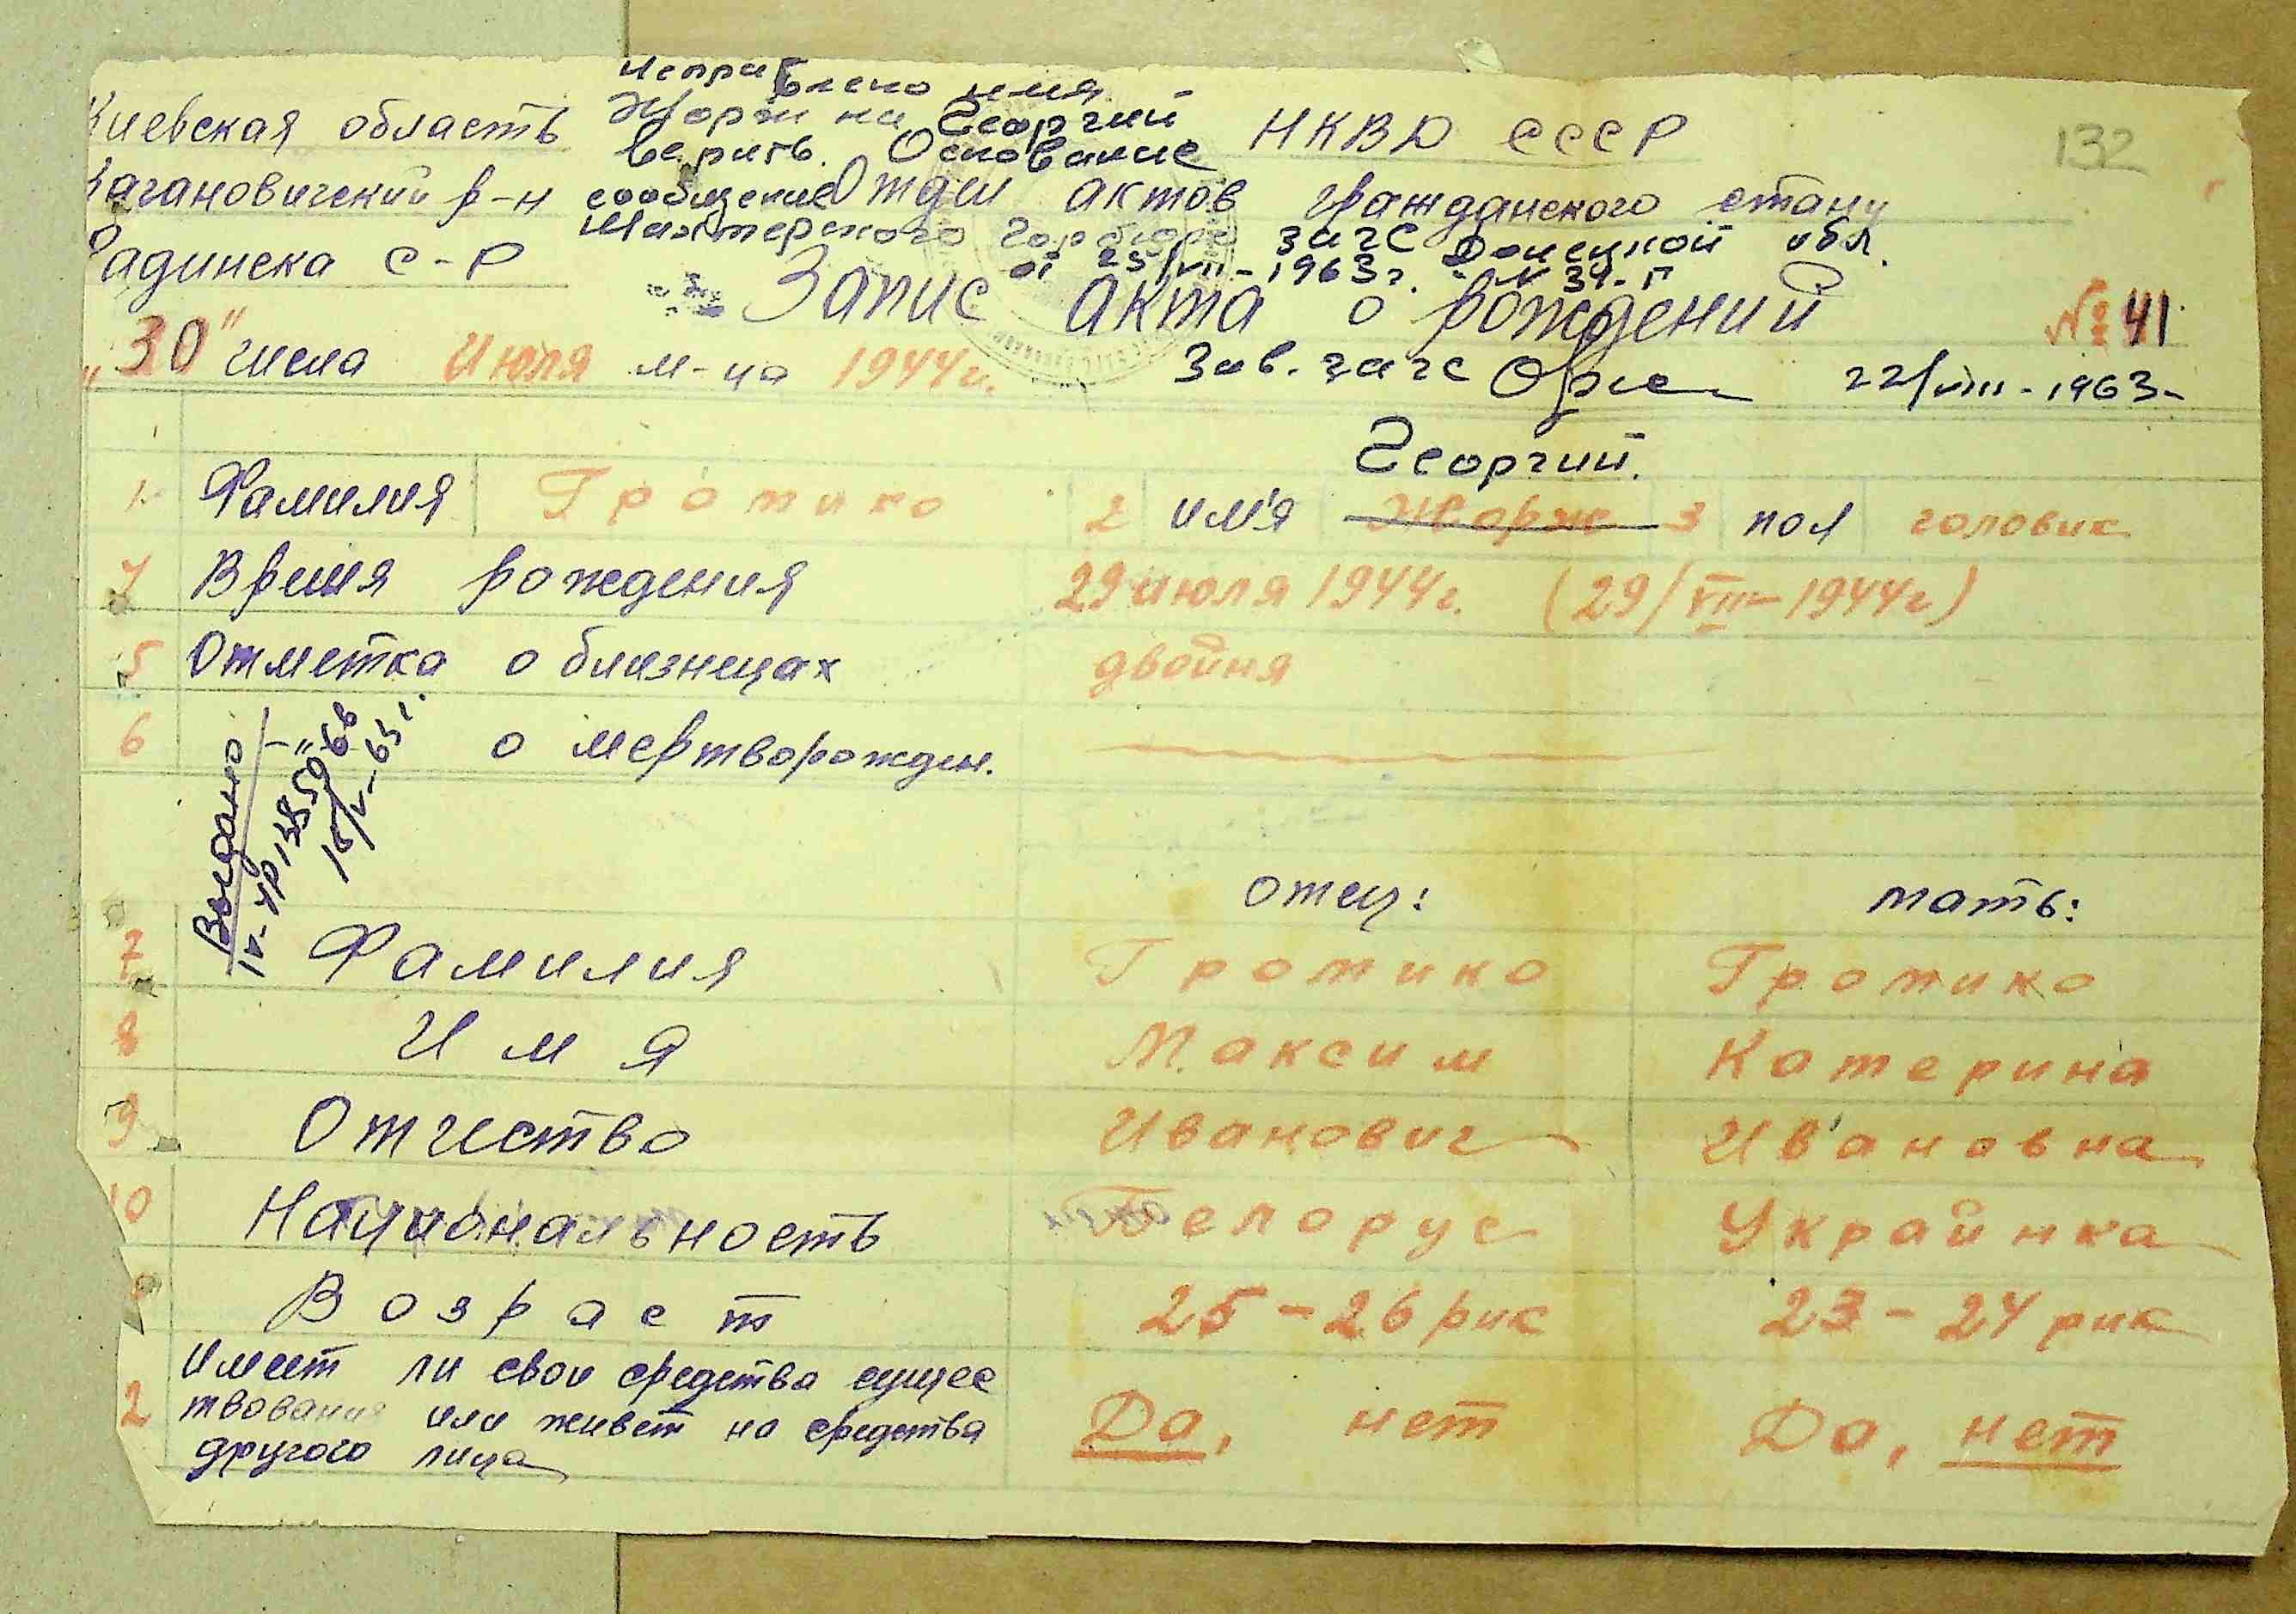 Киевская область
Кагановичский р-н
Радинска с-р
Исправлено имя
Жорж на Георгий
верить. Основание
сообщение
Шахтерского Горбюро загс Донецкой обл.
от 23/VII-1963г. № 34-Г
НКВД СССР
132
Отдел актов гражданского стану
Запис акта о рождений
№ 41
"30" числа Июля м-ца 1944г.
Зав. загс
22/VIII-1963-
Георгий.
1 Фамилия Громико 2 им'я Жорж 3 пол головик
4 Время рождения 29 июля 1944г. (29/VII-1944г)
5 Отметка о близнецах двойня
6 о мертворожден.
Выдано
IV-УР 138
15/V-63 г.
отец: мать:
7 Фамилия Громико Громико
8 Имя Максим Катерина
9 Отчество Иванович Ивановна
10 Национальность Белорус Украйинка
Возраст 25-26 рик 23-24 рик
2 Имеет ли свои средства сущес
твования или живет на средства
другого лица
Да, нет Да, нет